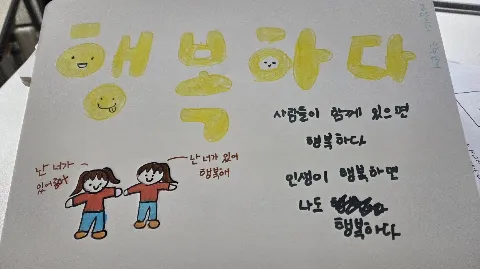 행복하다
사람들이 함께 있으면
행복하다
인생이 행복하면
나도
행복하다
난 너가
난 너가 있어
행복해